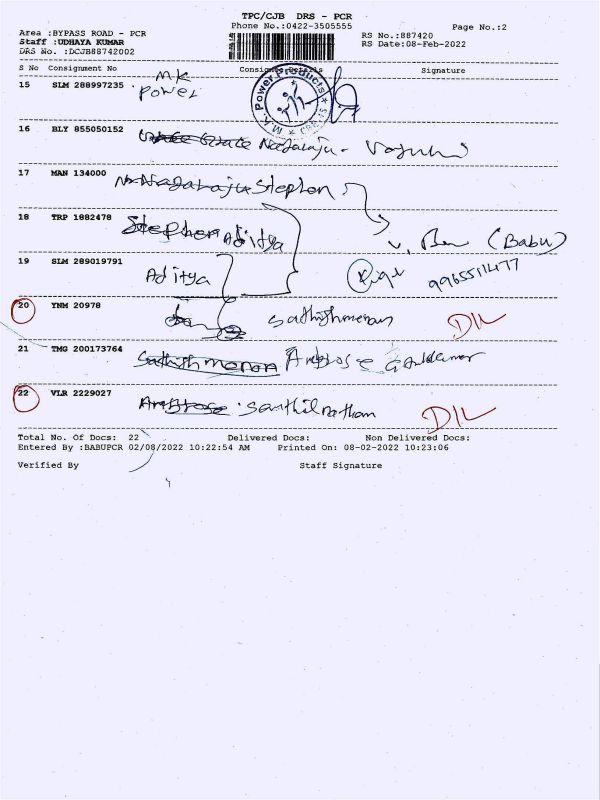 TPC/CJB DRS - PCR
Phone No.:0422-3505555
Page No.:2
Area :BYPASS ROAD - PCR
Staff :UDHAYA KUMAR
DRS No. :DCJB88742002
RS No.:887420
RS Date:08-Feb-2022
S No Consignment No Consignee Details Signature
15 SLM 288997235 MK
POWEL
M.K. Power Products
16 BLY 855050152 Nagaraju
17 MAN 134000 Nagaraju Stephen
18 TRP 1882478 Stephen Aditya
(Babu)
19 SLM 289019791 Aditya
9965511477
20 YNM 20978 Sathishmenon DIL
21 TMG 200173764 Sathish menon Ambrose
22 VLR 2229027 Ambrose Santhilnatham DIL
Total No. Of Docs: 22 Delivered Docs: Non Delivered Docs:
Entered By :BABUPCR 02/08/2022 10:22:54 AM Printed On: 08-02-2022 10:23:06
Verified By Staff Signature